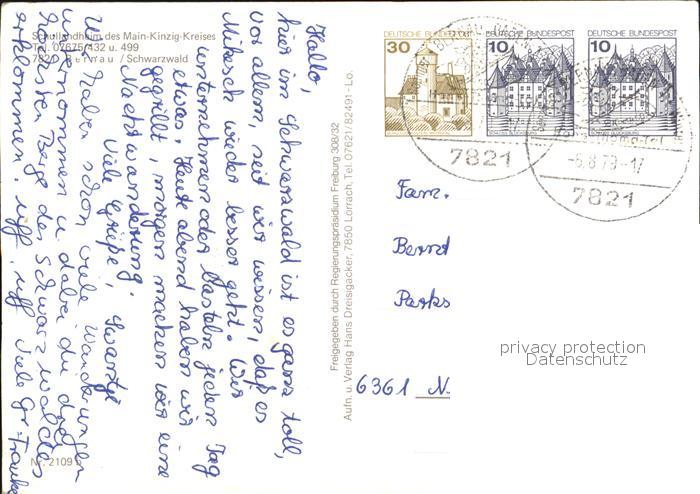 Schullandheim des Main-Kinzig-Kreises
Tel. 07675/432 u. 499
7821 Bernau / Schwarzwald
Hallo,
hier im Schwarzwald ist es ganz toll,
vor allem, seit wir wissen, daß es
Mikesch wieder besser geht. Wir
unternehmen oder basteln jeden Tag
etwas. Heute abend haben wir
gegrillt, morgen machen wir eine
Nachtwanderung.
Viele Grüße, Swantje
Wir haben schon viele Wanderungen
unternommen u. dabei die drei
höchsten Berge des Schwarzwaldes
erklommen. uff, uff Viele Gr. Frauke
Nr. 2109
Freigegeben durch Regierungspräsidium Freiburg 308/32
Aufn. u. Verlag Hans Dreisigacker, 7850 Lörrach, Tel. 07621/82491 - Lo.
DEUTSCHE BUNDESPOST
30
DEUTSCHE BUNDESPOST
10
DEUTSCHE BUNDESPOST
10
7821
-6.8.79-17
7821
Fam.
Bernd
Parks
6361 N.
privacy protection
Datenschutz